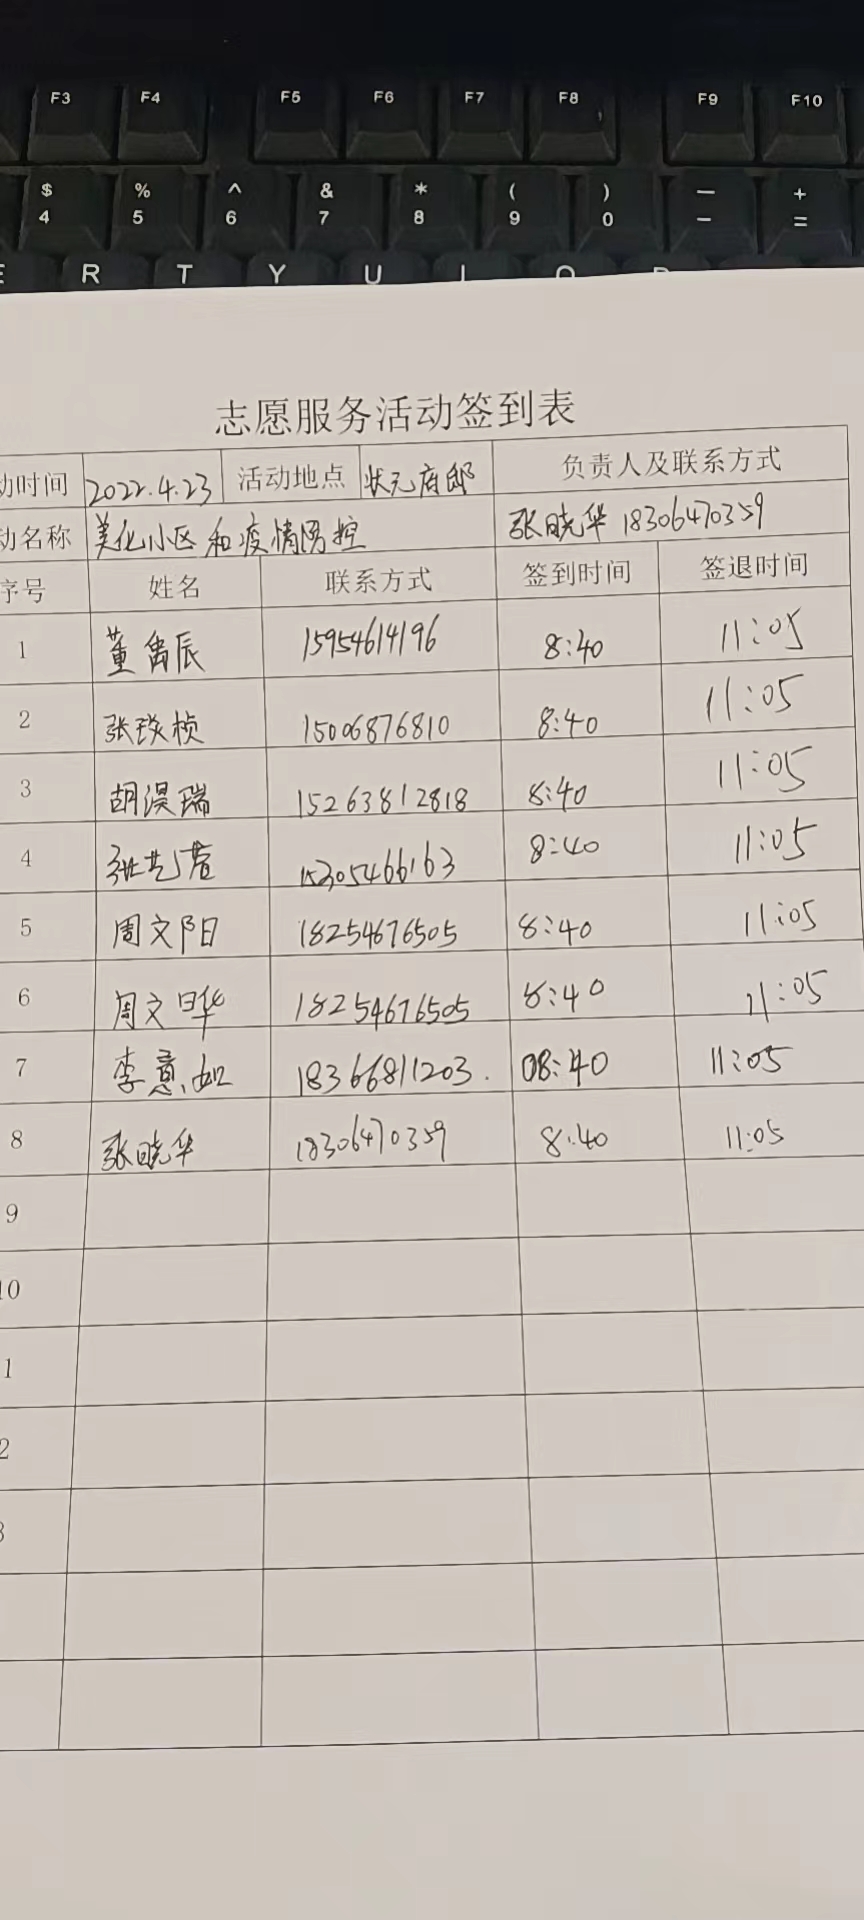 F3 F4 F5 F6 F7 F8 F9 F10
$ % ^ & * ( ) — +
4 5 6 7 8 9 0 - =
E R T Y U I O P
志愿服务活动签到表
动时间 2022.4.23 活动地点 状元府邸 负责人及联系方式
动名称 美化小区和疫情防控 张晓华 18306470359
序号 姓名 联系方式 签到时间 签退时间
1 董禹辰 15954614196 8:40 11:05
2 张琰桢 15006876810 8:40 11:05
3 胡淏瑞 15263812818 8:40 11:05
4 张艺 15305466163 8:40 11:05
5 周文阳 18254676505 8:40 11:05
6 周文晔 18254676505 8:40 11:05
7 李意如 18366811203. 08:40 11:05
8 张晓华 18306470359 8:40 11:05
9
10
1
2
3